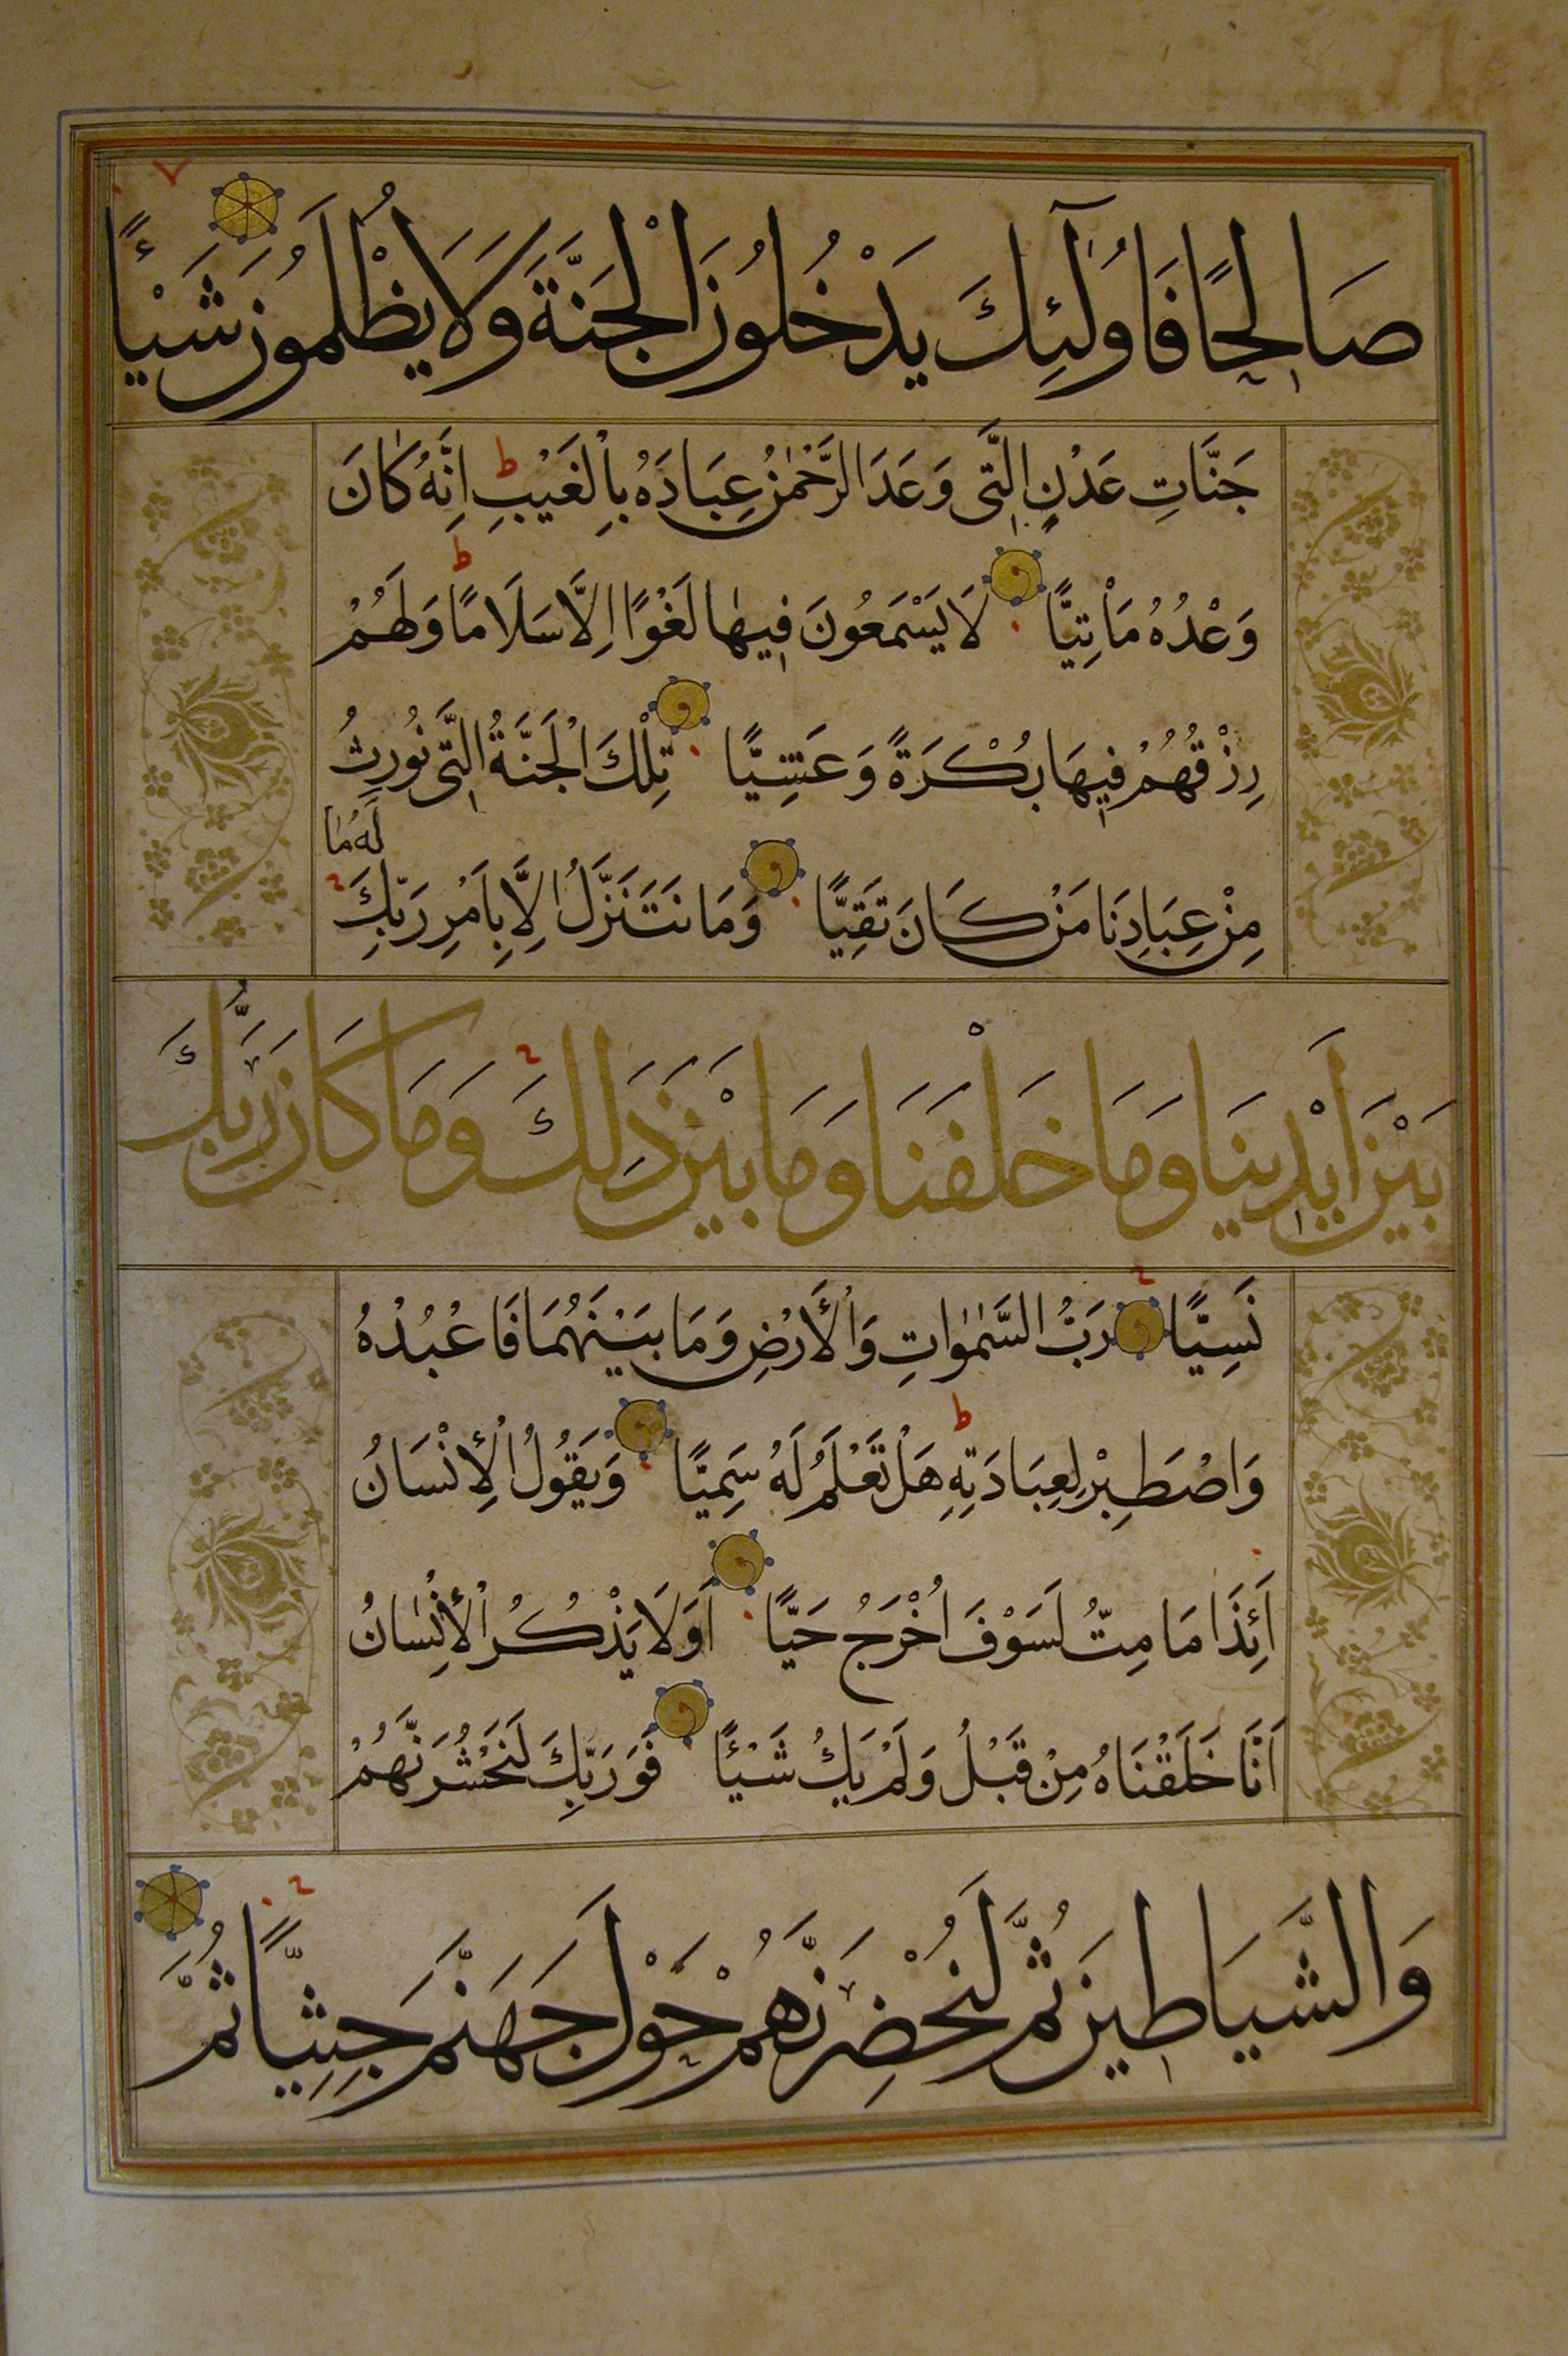 صَالِحًا فَاُولٰٓئِكَ يَدْخُلُونَ الْجَنَّةَ وَلَا يُظْلَمُونَ شَيْئًا
جَنَّاتِ عَدْنٍ الَّتِى وَعَدَ الرَّحْمٰنُ عِبَادَهُ بِالْغَيْبِ ط اِنَّهُ كَانَ
وَعْدُهُ مَاْتِيًّا لَا يَسْمَعُونَ فِيهَا لَغْوًا اِلَّا سَلَامًا ط وَلَهُمْ
رِزْقُهُمْ فِيهَا بُكْرَةً وَعَشِيًّا تِلْكَ الْجَنَّةُ الَّتِى نُورِثُ
مِنْ عِبَادِنَا مَنْ كَانَ تَقِيًّا وَمَا نَتَنَزَّلُ اِلَّا بِاَمْرِ رَبِّكَ لَهُ مَا
بَيْنَ اَيْدِينَا وَمَا خَلْفَنَا وَمَا بَيْنَ ذَلِكَ وَمَا كَانَ رَبُّكَ
نَسِيًّا رَبُّ السَّمٰوَاتِ وَالْأَرْضِ وَمَا بَيْنَهُمَا فَاعْبُدْهُ
وَاصْطَبِرْ لِعِبَادَتِهِ ط هَلْ تَعْلَمُ لَهُ سَمِيًّا وَيَقُولُ الْأِنْسَانُ
اَئِذَا مَا مِتُّ لَسَوْفَ اُخْرَجُ حَيًّا اَوَلَا يَذْكُرُ الْأِنْسَانُ
اَنَّا خَلَقْنَاهُ مِنْ قَبْلُ وَلَمْ يَكُ شَيْئًا فَوَرَبِّكَ لَنَحْشُرَنَّهُمْ
وَالشَّيَاطِينَ ثُمَّ لَنُحْضِرَنَّهُمْ حَوْلَ جَهَنَّمَ جِثِيًّا ثُمَّ